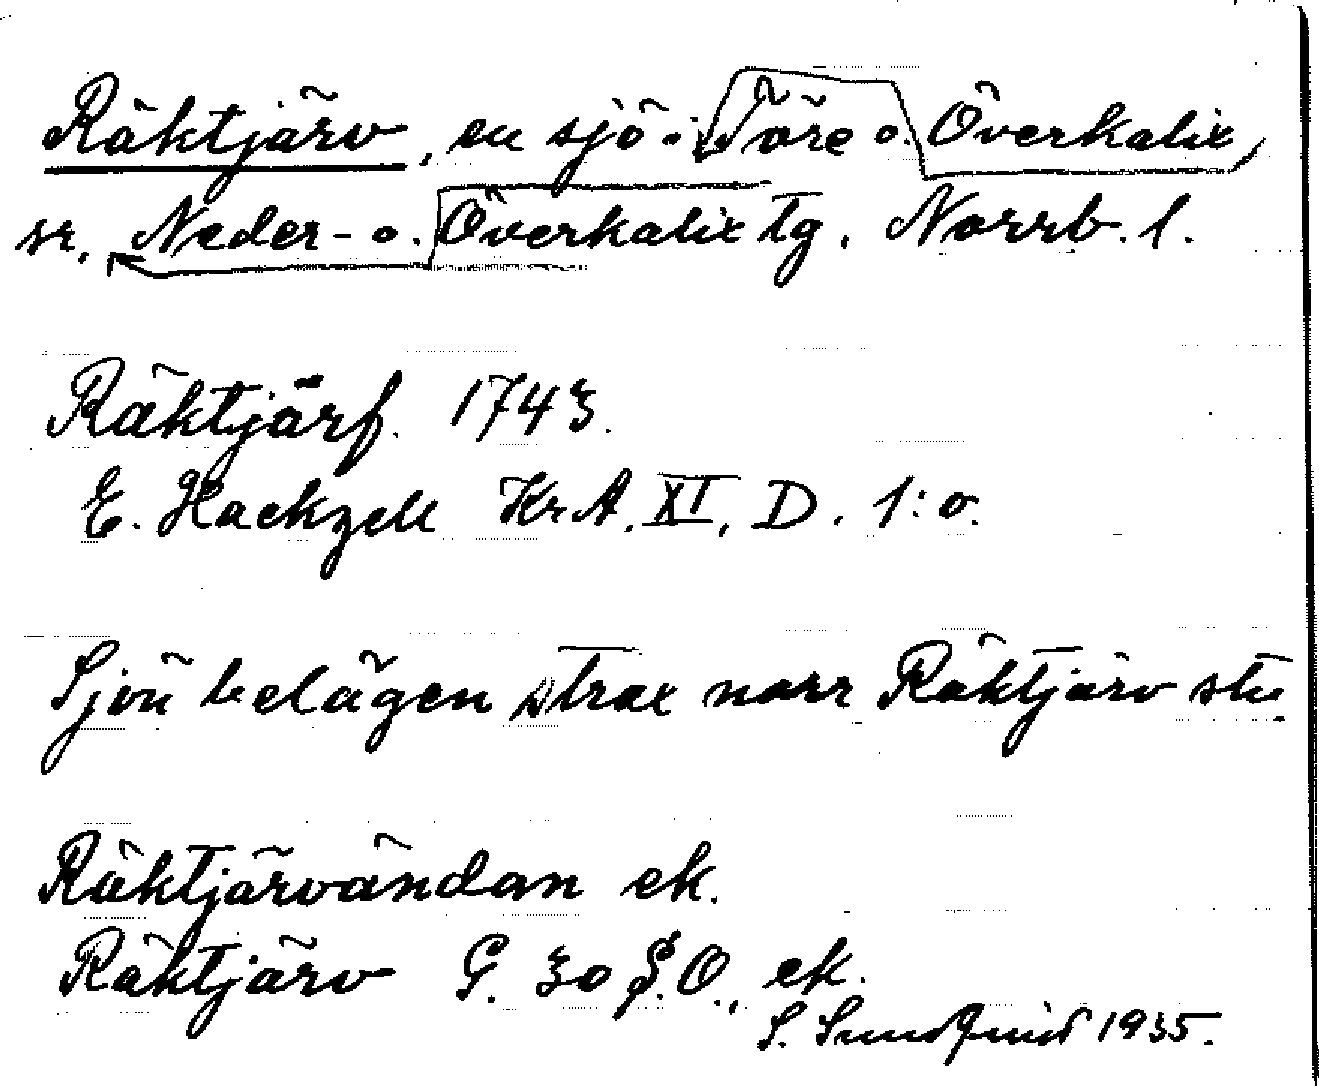 Räktjärv, en sjö i Töre o. Överkalix,
sr, Neder- o. Överkalix tg, Norrb. l.
Räktjärf. 1743.
E. Hackzell KrA. XI, D. 1:o.
Sjön belägen strax norr Räktjärv stn.
Räktjärvändan ek.
Räktjärv G. 30 S.O., ek.
S. Sundqvist 1935.